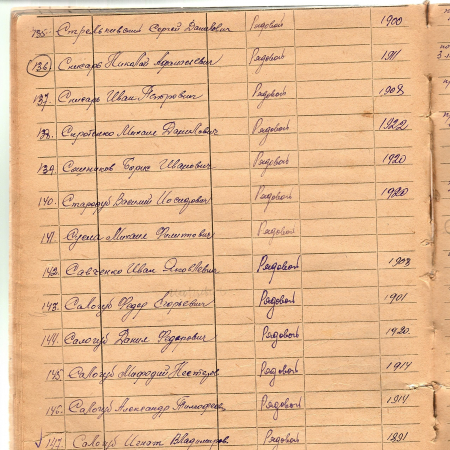 135. Стрельников Сергей Данилович Рядовой 1900
136. Слюсарь Николай Афанасьевич Рядовой 1911
137. Слюсарь Иван Петрович Рядовой 1908
138. Сиротенко Михаил Данилович Рядовой 1922
139. Сошников Борис Иванович Рядовой 1920
140. Стародуб Василий Иосифович Рядовой 1920
141. Михаил Филиппович Рядовой
142. Савченко Иван Яковлевич Рядовой 1903
143. Салогуб Федор Егорович Рядовой 1901
144. Салогуб Данил Федорович Рядовой 1920
145. Салогуб Мефодий Рядовой 1914
146. Салогуб Александр Тимофеев Рядовой 1914
147. Салогуб Игнат Владимиров. Рядовой 1891